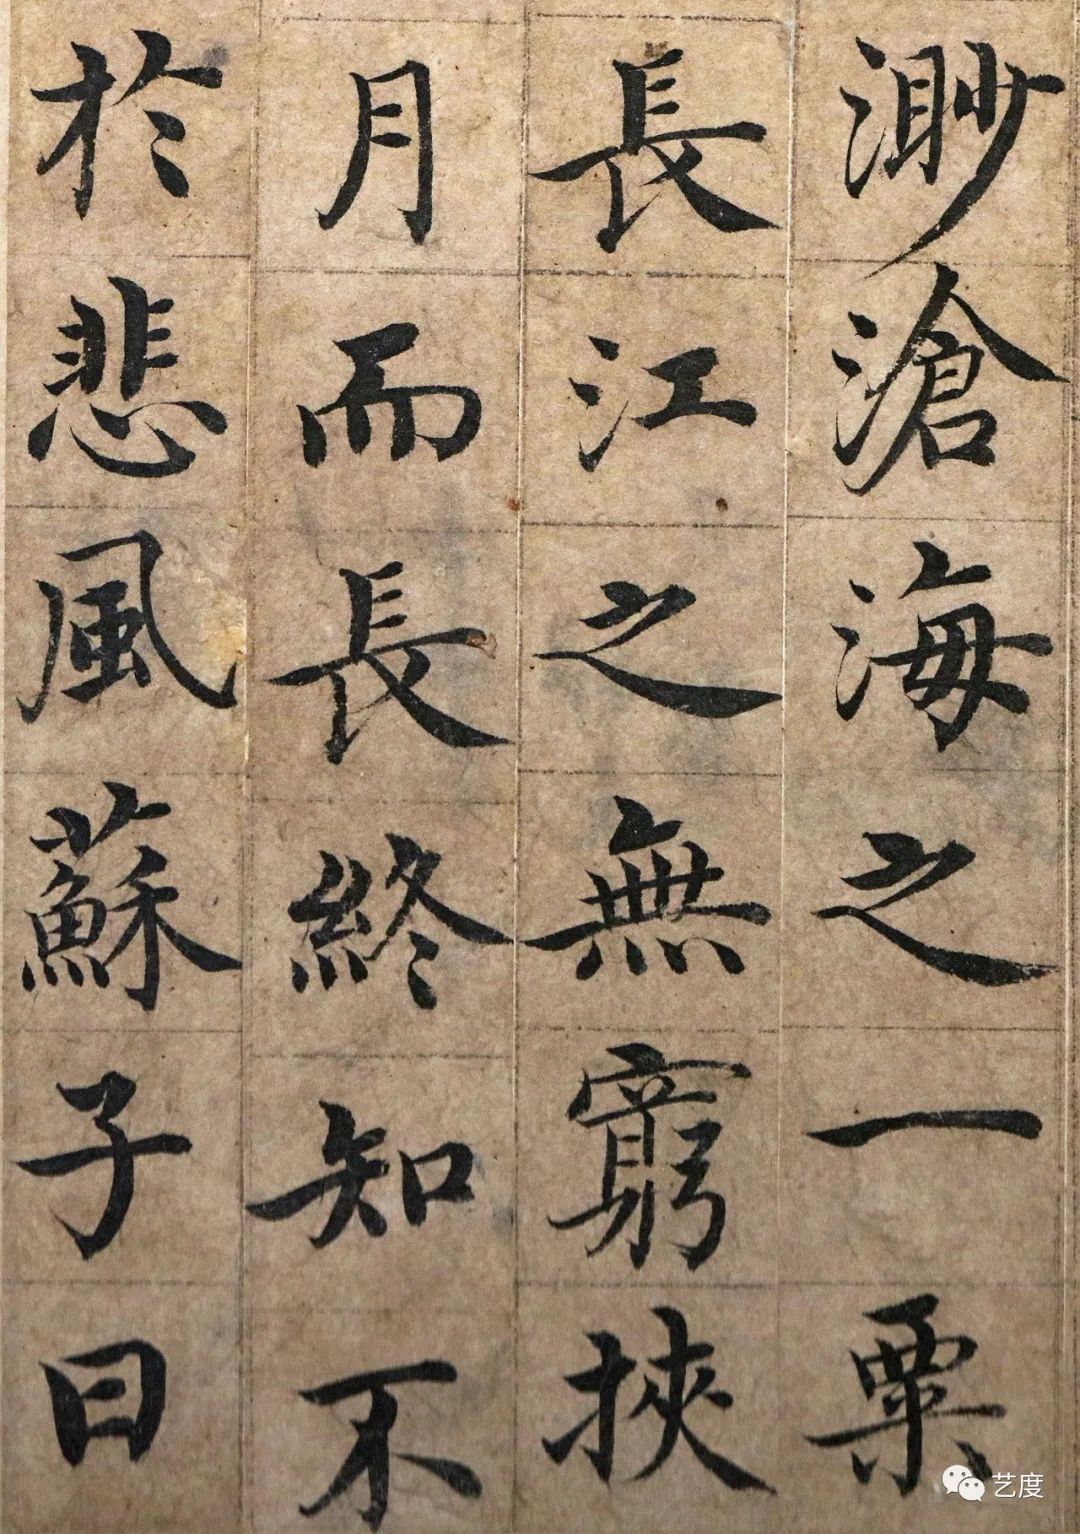 渺滄海之一粟
長江之無窮挾
月而長終知不
於悲風蘇子曰
艺度